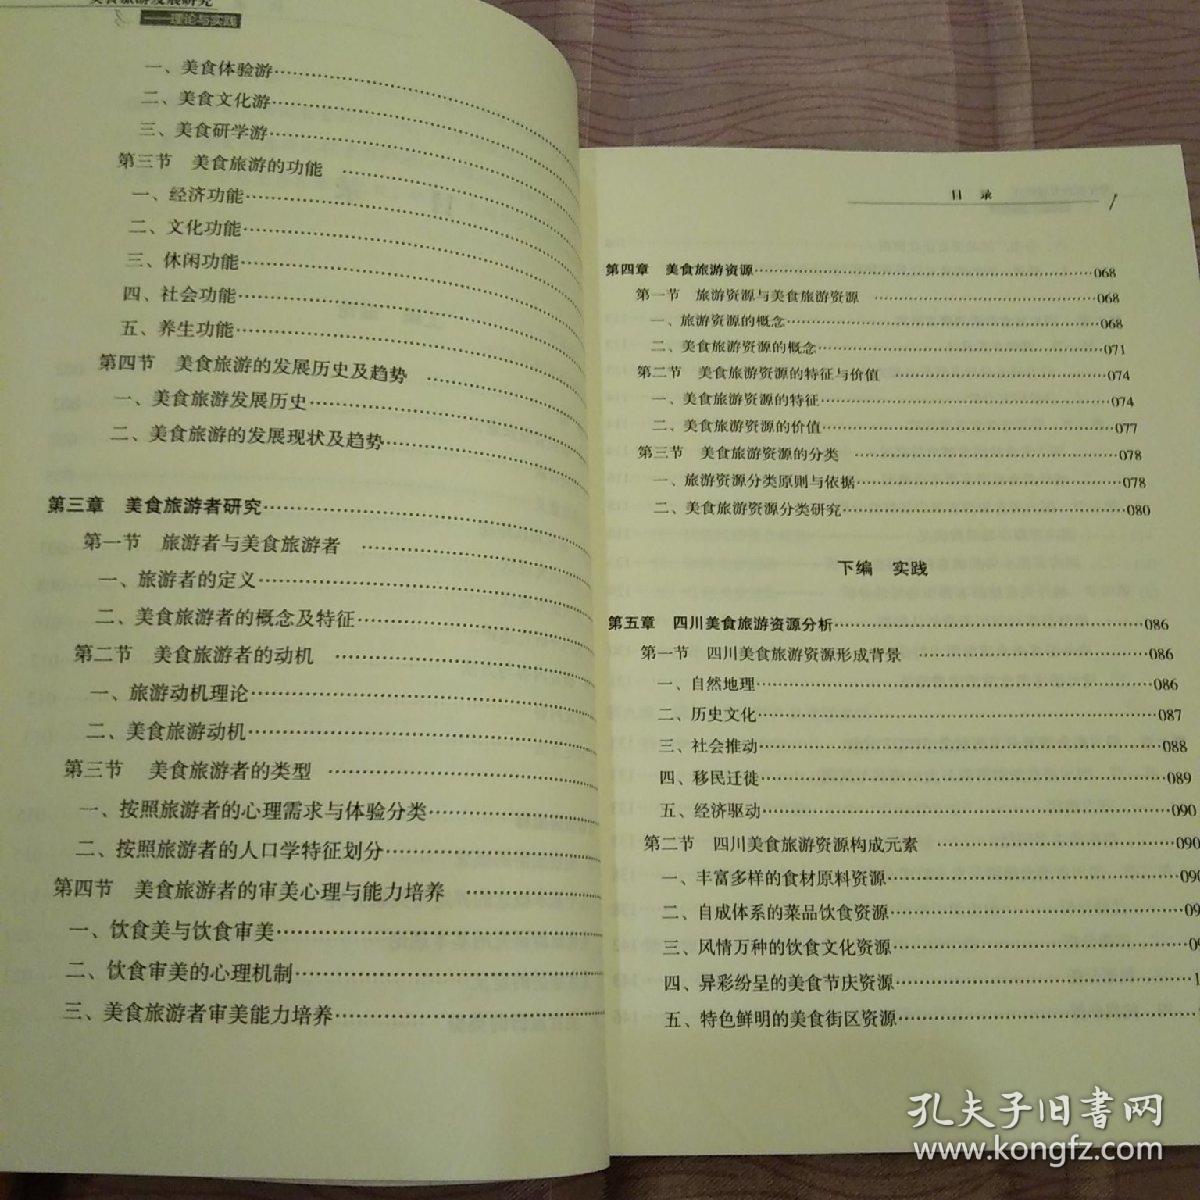 美食旅游发展研究
——理论与实践
一、美食体验游
二、美食文化游
三、美食研学游
第三节 美食旅游的功能
一、经济功能
二、文化功能
三、休闲功能
四、社会功能
五、养生功能
第四节 美食旅游的发展历史及趋势
一、美食旅游发展历史
二、美食旅游的发展现状及趋势
第三章 美食旅游者研究
第一节 旅游者与美食旅游者
一、旅游者的定义
二、美食旅游者的概念及特征
第二节 美食旅游者的动机
一、旅游动机理论
二、美食旅游动机
第三节 美食旅游者的类型
一、按照旅游者的心理需求与体验分类
二、按照旅游者的人口学特征划分
第四节 美食旅游者的审美心理与能力培养
一、饮食美与饮食审美
二、饮食审美的心理机制
三、美食旅游者审美能力培养
目 录
第四章 美食旅游资源 068
第一节 旅游资源与美食旅游资源 068
一、旅游资源的概念 068
二、美食旅游资源的概念 071
第二节 美食旅游资源的特征与价值 074
一、美食旅游资源的特征 074
二、美食旅游资源的价值 077
第三节 美食旅游资源的分类 078
一、旅游资源分类原则与依据 078
二、美食旅游资源分类研究 080
下编 实践
第五章 四川美食旅游资源分析 086
第一节 四川美食旅游资源形成背景 086
一、自然地理 086
二、历史文化 087
三、社会推动 088
四、移民迁徙 089
五、经济驱动 090
第二节 四川美食旅游资源构成元素 090
一、丰富多样的食材原料资源
二、自成体系的菜品饮食资源
三、风情万种的饮食文化资源
四、异彩纷呈的美食节庆资源
五、特色鲜明的美食街区资源
孔夫子旧书网
www.kongfz.com